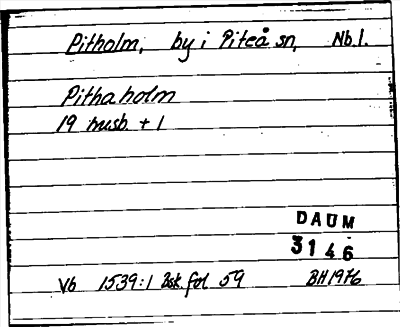 Pitholm, by i Piteå sn, Nb.l.
Pithaholm
19 husb. + 1
DAUM
3146
Vb 1539:1 Bsk. fol 59 BH 1976